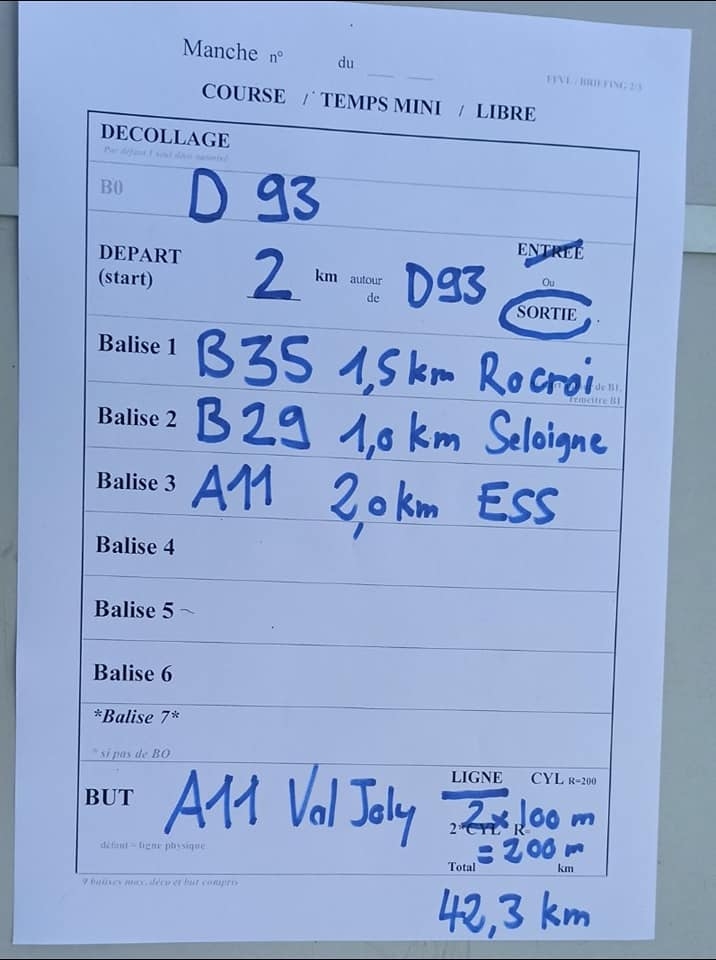 Manche n° du __ __
FFVL / BRIEFING 2/3
COURSE / TEMPS MINI / LIBRE
DECOLLAGE
Par défaut 1 seul déco autorisé
B0 D 93
DEPART (start) 2 km autour de D93 ENTREE Ou SORTIE
Balise 1 B35 1,5 km Rocroi
de B1, remettre B1
Balise 2 B29 1,0 km Seloigne
Balise 3 A11 2,0 km ESS
Balise 4
Balise 5
Balise 6
*Balise 7*
* si pas de BO
LIGNE CYL R=200
BUT A11 Val Joly 2 x 100 m
2*CYL R=
= 200 m
défaut = ligne physique
Total km
9 balises max, déco et but compris
42,3 km